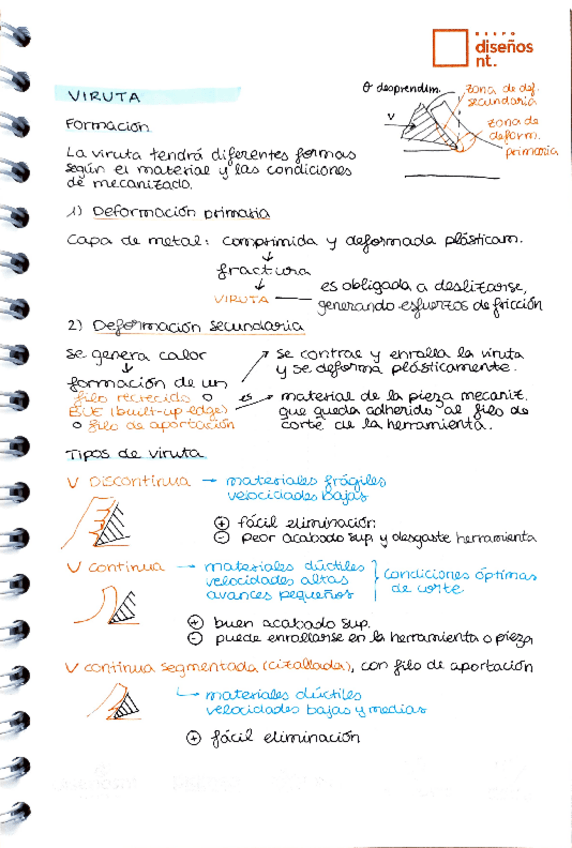 GRUPO
diseños
nt.
VIRUTA
θ desprendim.
zona de def.
secundaria
v
zona de
deform.
primaria
Formación
La viruta tendrá diferentes formas
según el material y las condiciones
de mecanizado.
1) Deformación primaria
Capa de metal: comprimida y deformada plásticam.
↓
fractura
↓
VIRUTA — es obligada a deslizarse,
generando esfuerzos de fricción
2) Deformación secundaria
se genera calor
↓
formación de un
filo recrecido o
BUE (built-up edge)
o filo de aportación
se contrae y enrolla la viruta
y se deforma plásticamente.
es → material de la pieza mecaniz.
que queda adherido al filo de
corte de la herramienta.
Tipos de viruta
V DISCONTINUA → materiales frágiles
velocidades bajas
+ fácil eliminación
- peor acabado sup. y desgaste herramienta
V continua → materiales dúctiles
velocidades altas
avances pequeños
condiciones óptimas
de corte
+ buen acabado sup.
- puede enrollarse en la herramienta o pieza
V continua segmentada (cizallada), con filo de aportación
→ materiales dúctiles
velocidades bajas y medias
+ fácil eliminación